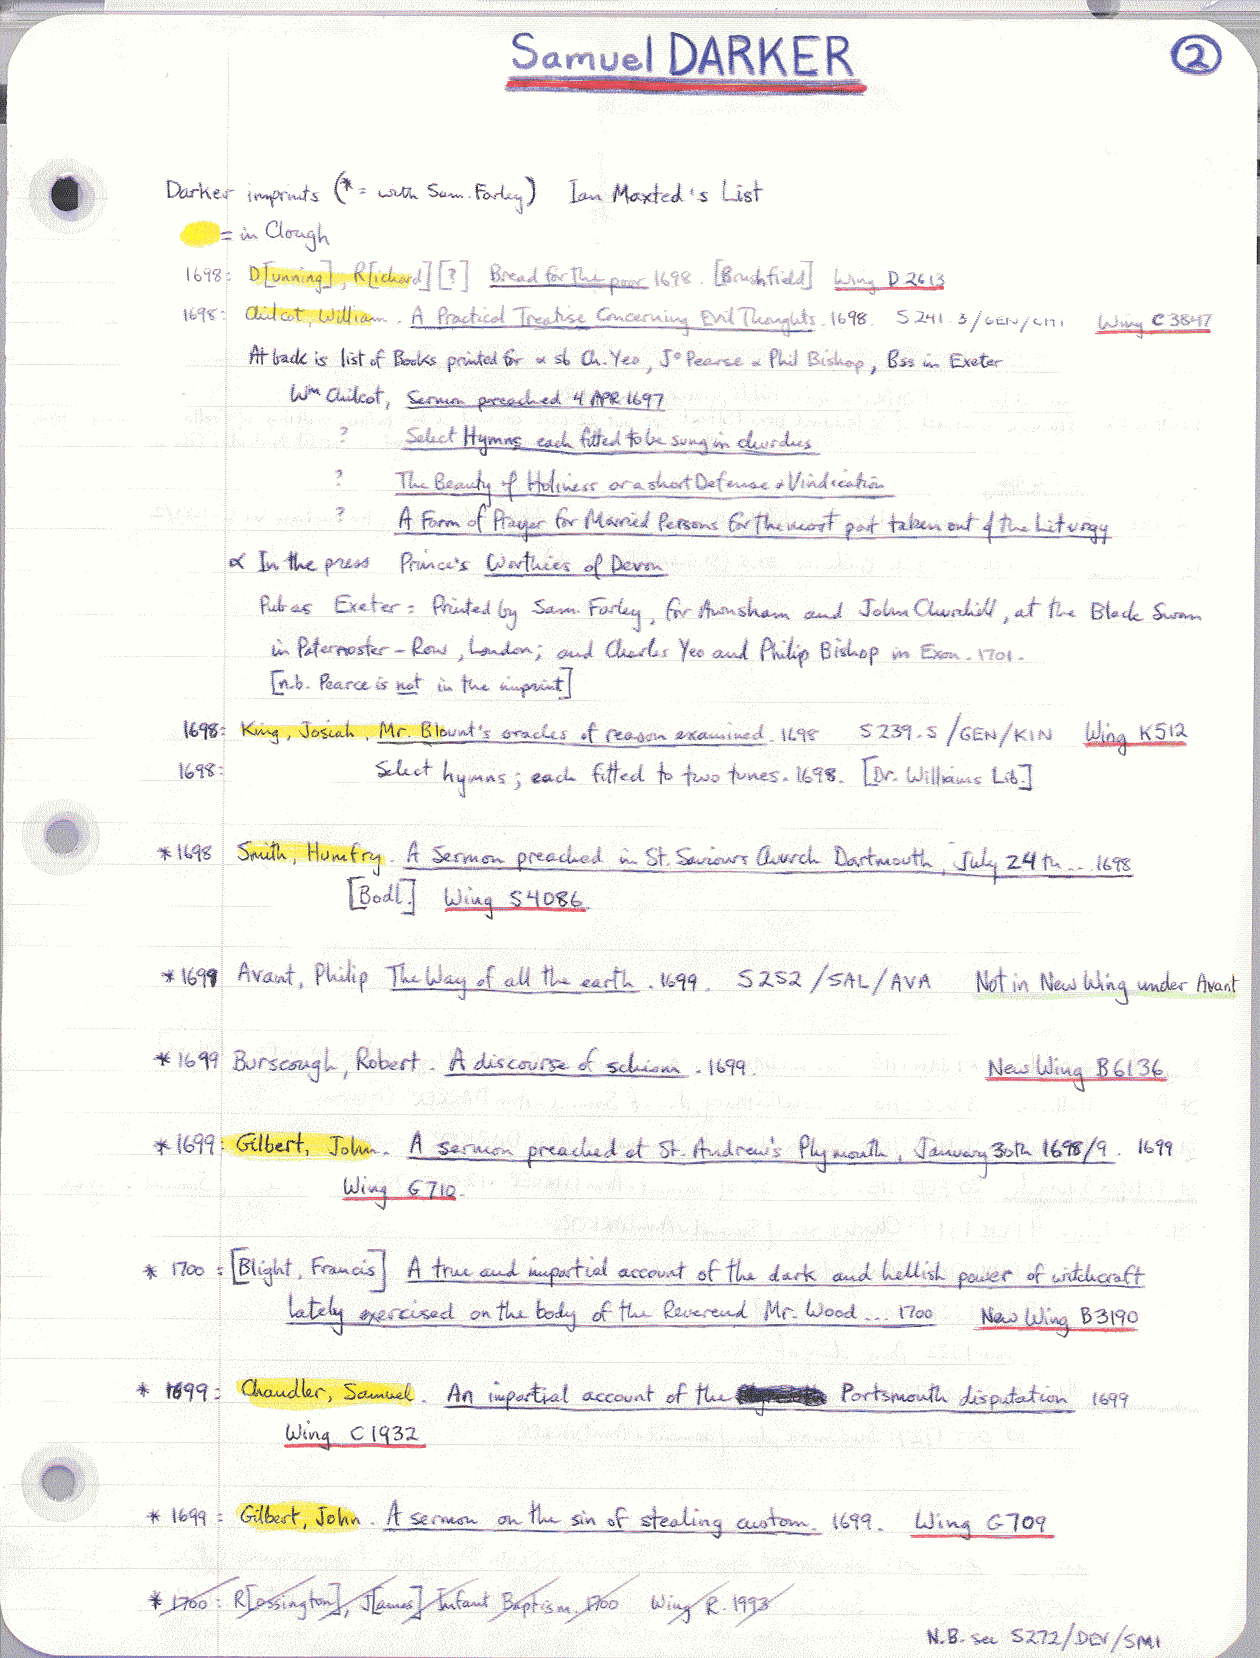 Samuel DARKER
2
Darker imprints (* = with Sam. Farley) Ian Maxted's List
= in Clough
1698: D[unning], R[ichard] [?] Bread for the poor 1698. [Brushfield] Wing D 2613
1698: Chilcot, William. A Practical Treatise Concerning Evil Thoughts. 1698. S241.3/GEN/CHI Wing C3847
At back is list of Books printed for & sb Ch. Yeo, Jº Pearse & Phil Bishop, Bss in Exeter
Wm Chilcot, Sermon preached 4 APR 1697
? Select Hymns each fitted to be sung in churches
? The Beauty of Holiness or a short Defense & Vindication
? A Form of Prayer for Married Persons for the most part taken out of the Liturgy
& In the press Prince's Worthies of Devon
Pub as Exeter: Printed by Sam. Farley, for Awnsham and John Churchill, at the Black Swan
in Paternoster-Row, London; and Charles Yeo and Philip Bishop in Exon. 1701.
[n.b. Pearce is not in the imprint]
1698: King, Josiah. Mr. Blount's oracles of reason examined. 1698 S239.5/GEN/KIN Wing K512
1698: Select hymns; each fitted to two tunes. 1698. [Dr. Williams Lib.]
* 1698 Smith, Humfry. A Sermon preached in St. Saviours Church Dartmouth, July 24th... 1698
[Bodl.] Wing S4086.
* 1699 Avant, Philip The Way of all the earth. 1699. S252/SAL/AVA Not in New Wing under Avant
* 1699 Burscough, Robert. A discourse of schism. 1699. New Wing B6136
* 1699: Gilbert, John. A sermon preached at St. Andrew's Plymouth, January 30th 1698/9. 1699
Wing G710.
* 1700: [Blight, Francis] A true and impartial account of the dark and hellish power of witchcraft
lately exercised on the body of the Reverend Mr. Wood... 1700 New Wing B3190
* 1699: Chandler, Samuel. An impartial account of the Portsmouth disputation 1699
Wing C1932
* 1699: Gilbert, John. A sermon on the sin of stealing custom. 1699. Wing G709
* 1700: R[ossington], J[ames] Infant Baptism. 1700 Wing R.1993
N.B. see S272/DEV/SMI